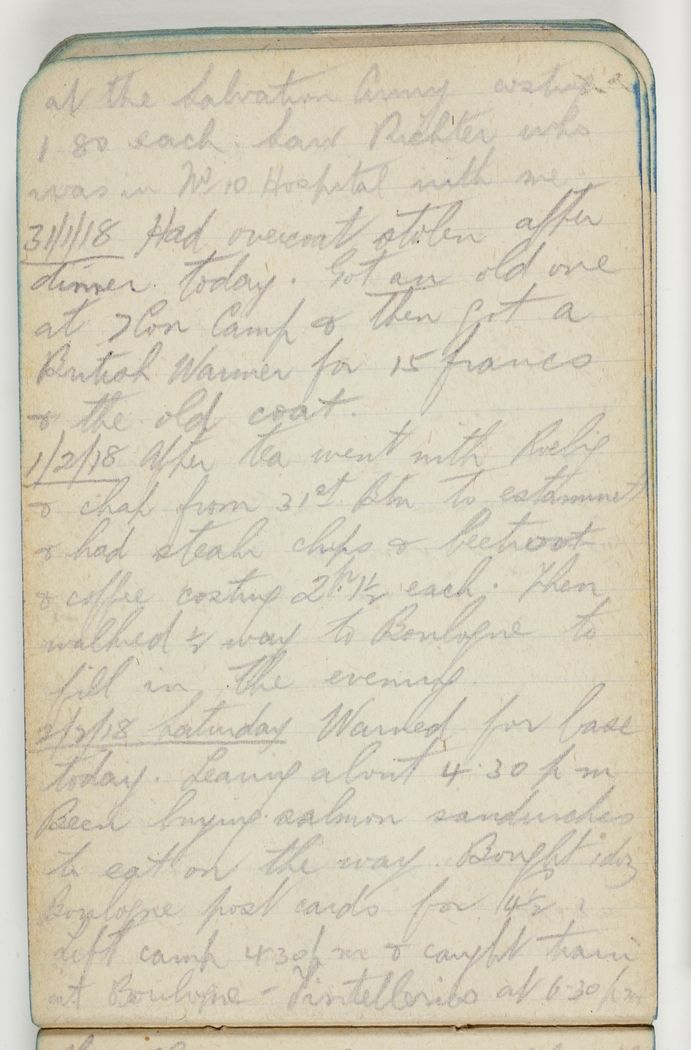 at the Salvation Army costing
1 80 each. Saw Richter who
was in No 10 Hospital with me
31/1/18 Had overcoat stolen after
dinner today. Got an old one
at 7 Con Camp & then got a
British Warmer for 15 francs
& the old coat.
1/2/18 After tea went with
& chap from 31st Btn to estaminet
& had steak chips & beetroot
& coffee costing 2 1/2 each. Then
walked 1/2 way to Boulogne to
fill in the evening.
2/2/18 Saturday Warned for base
today. Leaving about 4.30 pm
Been buying salmon sandwiches
to eat on the way. Bought 1 doz
Boulogne post cards for
Left camp 430 pm & caught train
at Boulogne - Tintelleries at 6-30 pm